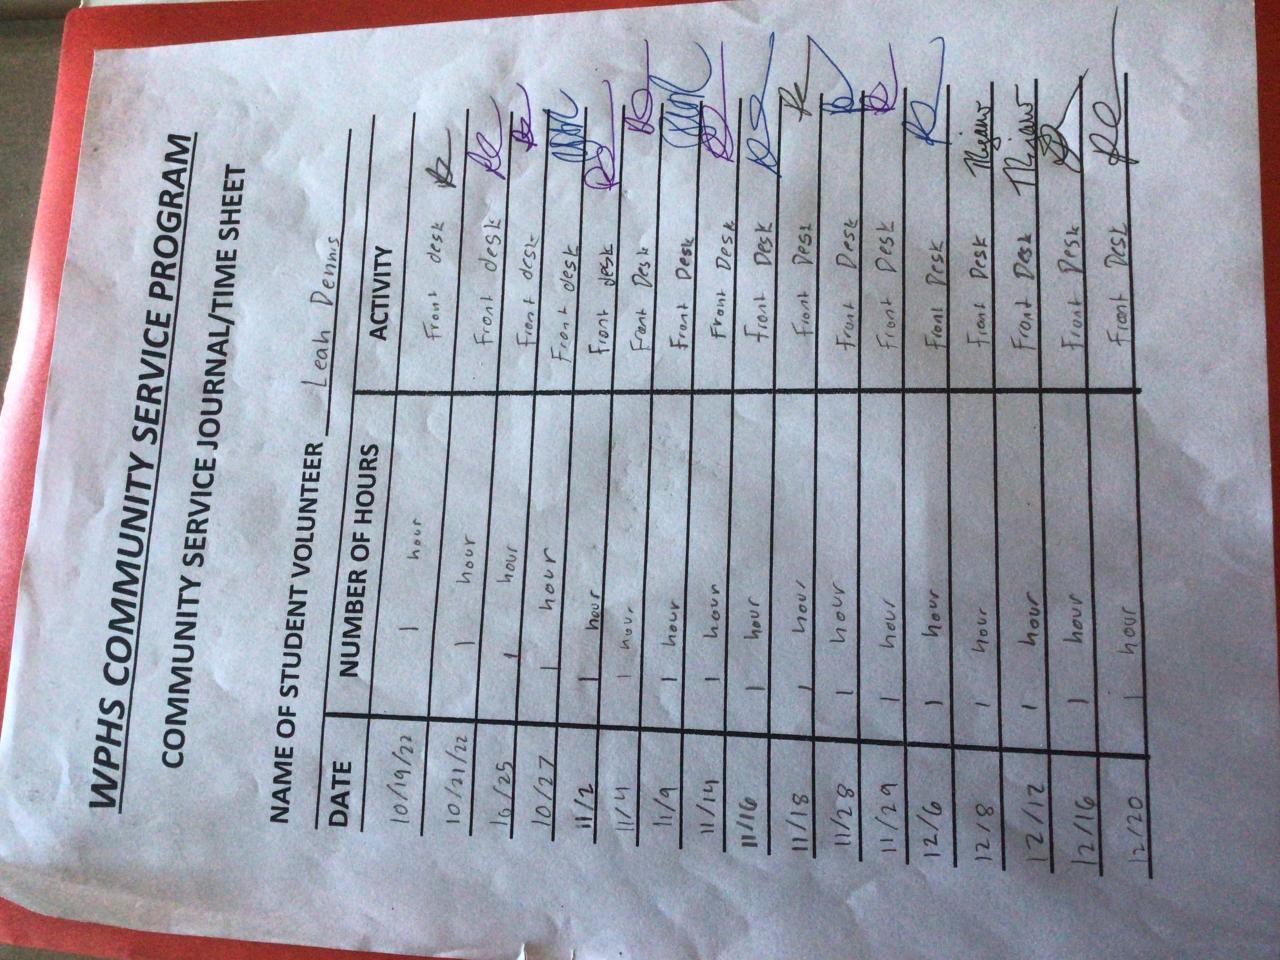 WPHS COMMUNITY SERVICE PROGRAM
COMMUNITY SERVICE JOURNAL/TIME SHEET
NAME OF STUDENT VOLUNTEER Leah Dennis
DATE NUMBER OF HOURS ACTIVITY
10/19/22 1 hour Front desk
10/21/22 1 hour Front desk
10/25 1 hour Front desk
10/27 1 hour Front desk
11/2 1 hour Front desk
11/4 1 hour Front Desk
11/9 1 hour Front Desk
11/14 1 hour Front Desk
11/16 1 hour Front Desk
11/18 1 hour Front Desk
11/28 1 hour Front Desk
11/29 1 hour Front Desk
12/6 1 hour Front Desk
12/8 1 hour Front Desk
12/12 1 hour Front Desk
12/16 1 hour Front Desk
12/20 1 hour Front Desk